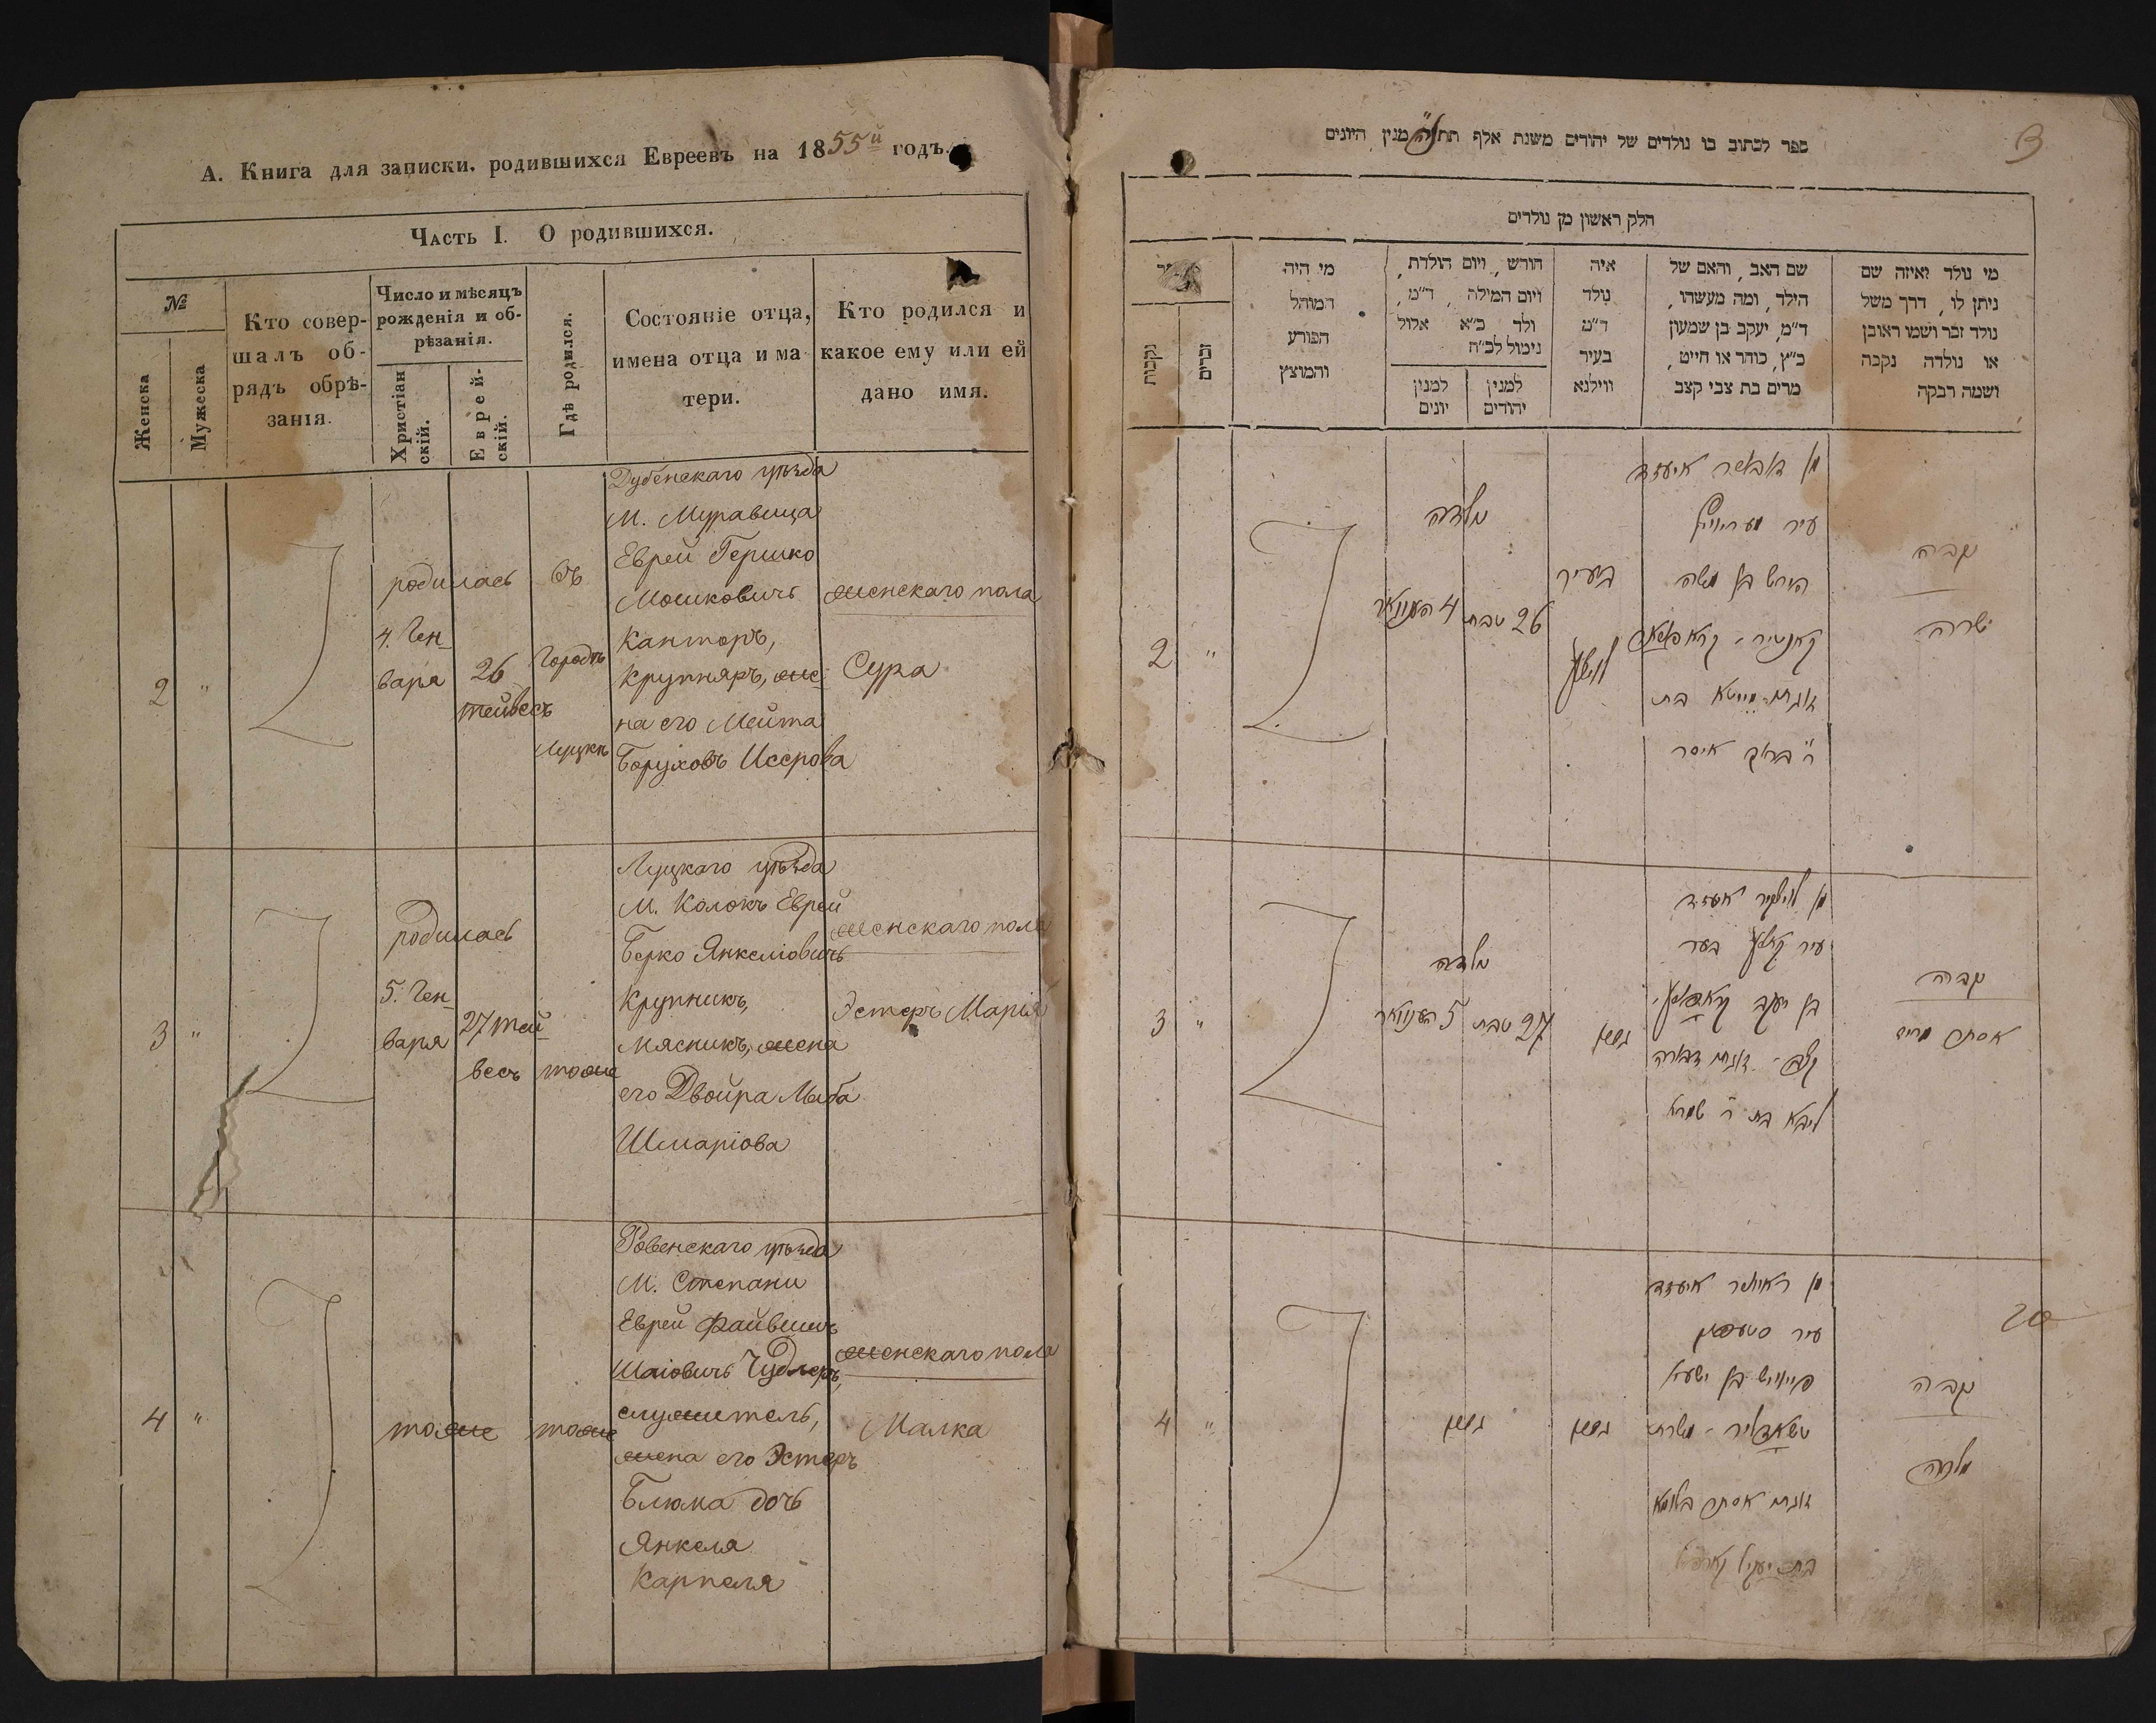 А. Книга для записки родившихся Евреевъ на 1855й годъ.
Часть I. О родившихся.
№
Женска
Мужеска
Кто совер-
шалъ об-
рядъ обрѣ-
занія.
Число и мѣсяцъ
рожденія и об-
рѣзанія.
Христіан
скій.
Еврей-
скій.
Гдѣ родился.
Состояніе отца,
имена отца и ма
тери.
Кто родился и
какое ему или ей
дано имя.
2 "
родилась
4. Ген
варя
26
тейвесъ
въ
Городѣ
Луцкѣ
Дубенскаго уѣзда
М. Муравица
Еврей Гершко
Мошковичъ
Канторъ,
крупняръ, же
на его Мейта
Борухова Исерова
женскаго пола
Сура
3 "
родилась
5. Ген
варя
27 тей
весъ
тоже
Луцкаго уѣзда
М. Колокъ Еврей
Берко Янкеліовичъ
Крупникъ,
мясникъ, жена
его Двойра Либа
Шмаріова
женскаго пола
Эстеръ Марія
4 "
тоже
тоже
Ровенскаго уѣзда
М. Степани
Еврей Файвишъ
Шаіовичъ Чудлеръ,
служитель,
жена его Эстеръ
Блюма дочь
Янкеля
Карпеля
женскаго пола
Малка
3
ספר לכתוב בו נולדים של יהודים משנת אלף תתנ"ה מנין היונים
חלק ראשון מן נולדים
מי נולד ואיזה שם
ניתן לו, דרך משל
נולד זכר ושמו ראובן
או נולדה נקבה
ושמה רבקה
שם האב, והאם של
הילד, ומה מעשהו,
ד"מ, יעקב בן שמעון
כ"ץ, סוחר או חייט,
מרים בת צבי קצב
איה
נולד
ד"מ
בעיר
ווילנא
חודש, ויום הולדת,
ויום המילה, ד"מ,
ולד כ"א אלול
נימול לכ"ח
למנין
יהודים
למנין
יונים
מי היה
המוהל
הפורע
והמוצץ
זכרים
נקבות
נקבה
שרה
עיר
הירש בן משה
בת
ר' ברוך איסר
בעיר
לוצק
נולדה
26 טבת
4 יענוואר
2 "
נקבה
אסתר מרים
עיר קאלק בער
בן יעקב
ליבא בת ר' שמרי
כנ"ל
נולדה
27 טבת
5 יענוואר
3 "
20
נקבה
מלכה
עיר סטעפאן
פייוויש בן ישעי'
אסתר בלומא
4 "